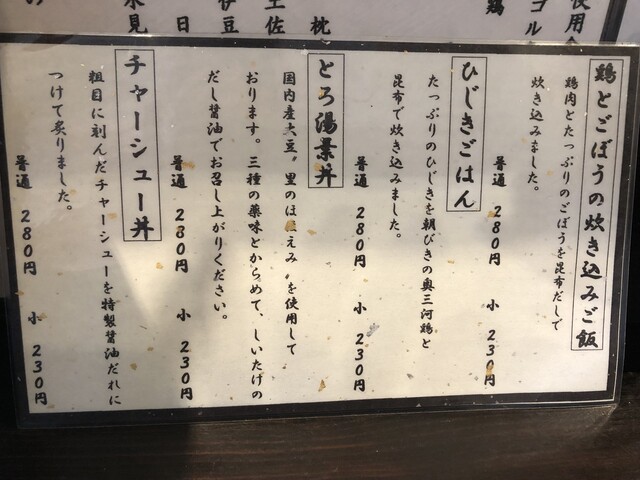 鶏とごぼうの炊き込みご飯
鶏肉とたっぷりのごぼうを昆布だしで
炊き込みました。
普通 280円 小 230円
ひじきごはん
たっぷりのひじきを朝びきの奥三河鶏と
昆布で炊き込みました。
普通 280円 小 230円
とろ湯葉丼
国内産大豆〝里のほほえみ〟を使用して
おります。三種の薬味とからめて、しいたけの
だし醤油でお召し上がりください。
普通 280円 小 230円
チャーシュー丼
粗目に刻んだチャーシューを特製醤油だれに
つけて炙りました。
普通 280円 小 230円
使用
コル
鶏
枕
土佐
伊豆
日
氷見
の